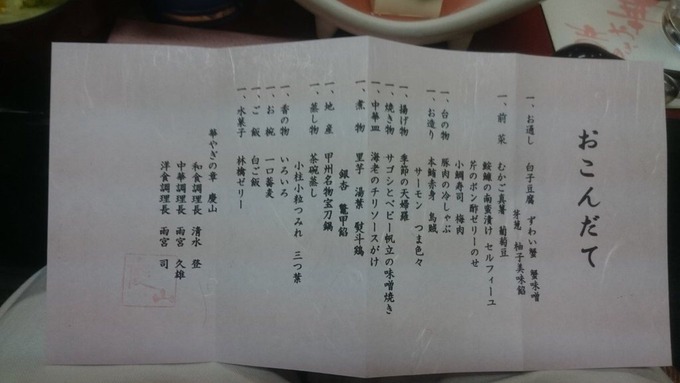 おこんだて
一、お通し 白子豆腐 ずわい蟹 蟹味噌
芽葱 柚子美味餡
一、前菜 むかご真薯 葡萄豆
鮟鱇の南蛮漬け セルフィーユ
芹のポン酢ゼリーのせ
小鯛寿司 梅肉
一、台の物 豚肉の冷しゃぶ
一、お造り 本鮪赤身 烏賊
サーモン つま色々
一、揚げ物 季節の天婦羅
一、焼き物 サゴシとベビー帆立の味噌焼き
一、中華皿 海老のチリソースがけ
一、煮物 里芋 湯葉 熨斗鶏
銀杏 鼈甲餡
一、地産 甲州名物宝刀鍋
一、蒸し物 茶碗蒸し
小柱小粒つみれ 三つ葉
一、香の物 いろいろ
一、お椀 一口蕎麦
一、ご飯 白ご飯
一、水菓子 林檎ゼリー
華やぎの章 慶山
和食調理長 清水 登
中華調理長 雨宮 久雄
洋食調理長 雨宮 司